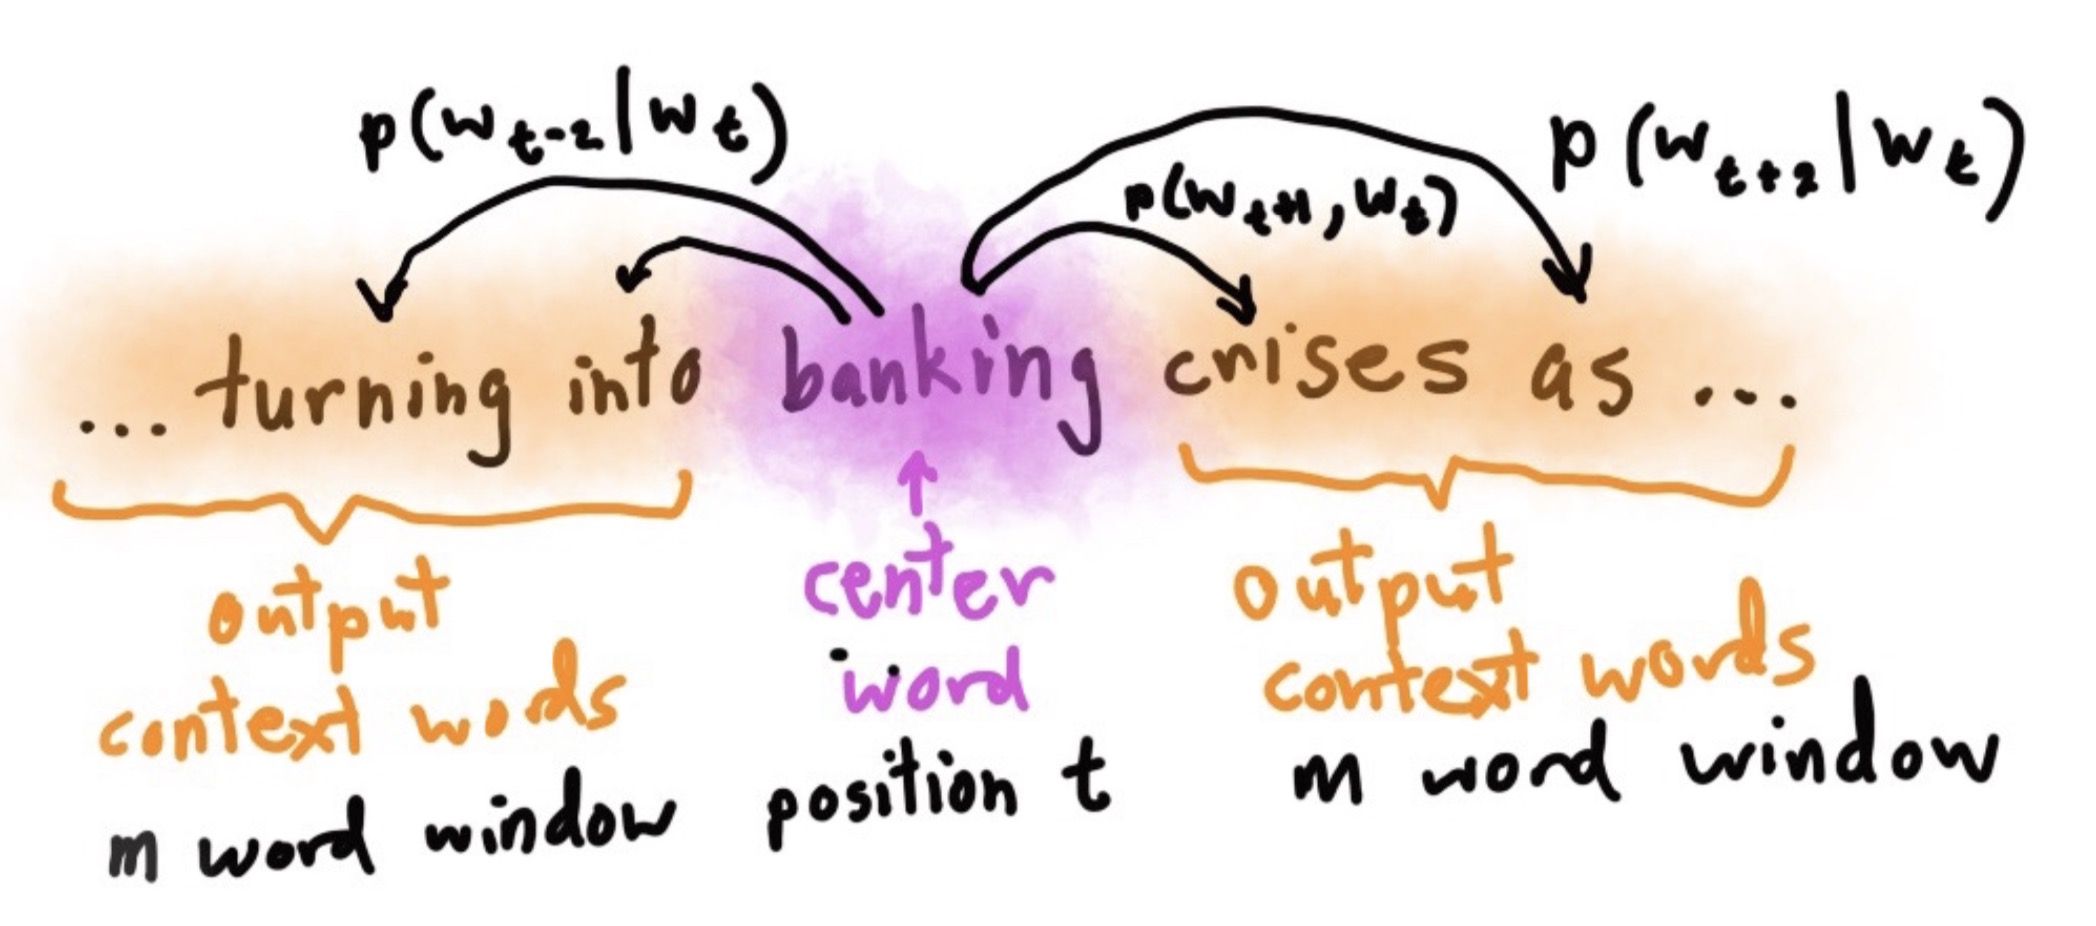 p(w t-2 | w t)
p(w t+1 , w t)
p(w t+2 | w t)
... turning into banking crises as ...
output
context words
m word window
center
word
position t
output
context words
m word window